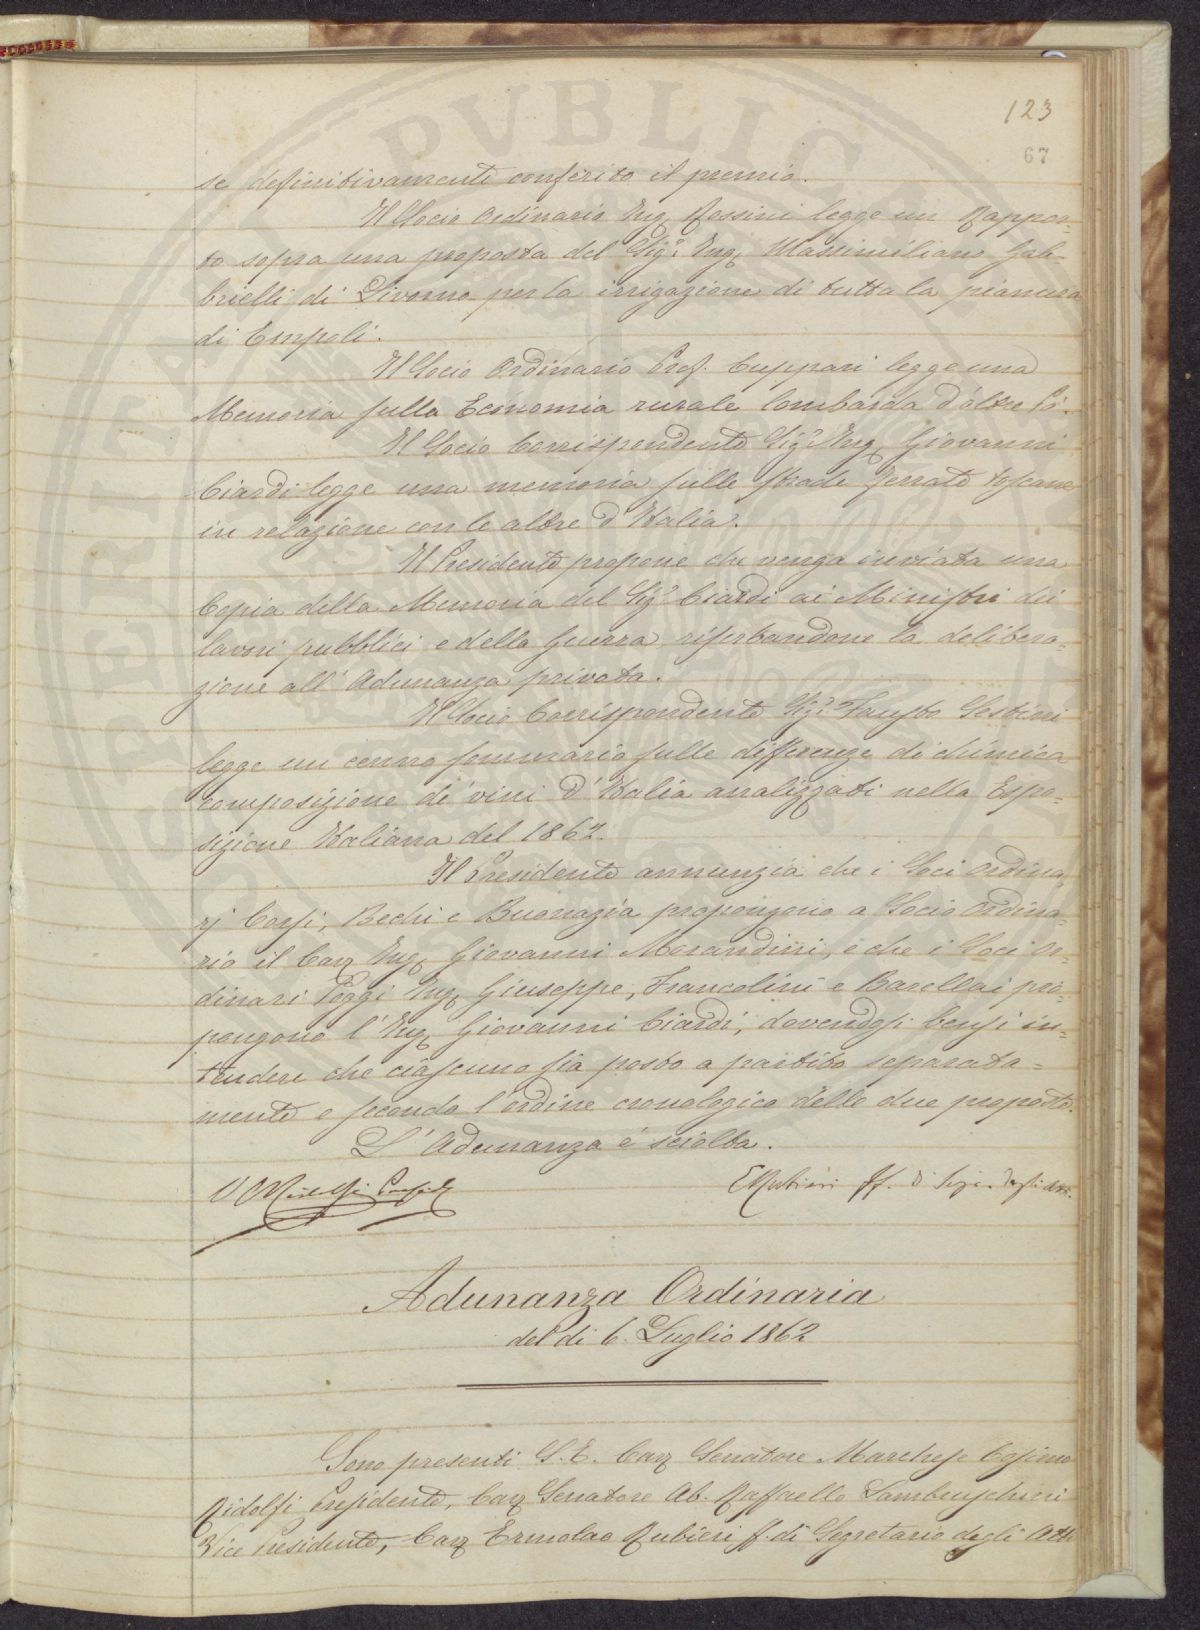 123
67
se definitivamente conferito il premio.
Il Socio Ordinario Ing. Rossini legge un Rappor=
to sopra una proposta del Sig.r Ing. Massimiliano Gab=
brielli di Livorno per la irrigazione di tutta la pianura
di Empoli.
Il Socio Ordinario Prof. Cuppari legge una
Memoria sulla Economia rurale lombarda d'oltre Pò.
Il Socio Corrispondente Sig.r Ing. Giovanni
Ciardi legge una memoria sulle strade ferrate toscane
in relazione con le altre d'Italia.
Il Presidente propone che venga inviata una
Copia della Memoria del Sig.r Ciardi ai Ministri dei
lavori pubblici e della Guerra riserbandone la delibera=
zione all'Adunanza privata.
Il Socio Corrispondente Sig.r Fausto Sestini
legge un cenno sommario sulle differenze di chimica
composizione de' vini d'Italia analizzati nella Espo=
sizione Italiana del 1862.
Il Presidente annunzia che i Soci Ordina=
rj Corsi, Bechi e Buonazia propongono a Socio Ordina=
rio il Cav. Ing. Giovanni Morandini, e che i Soci Or=
dinari Poggi Ing. Giuseppe, Francolini e Barellai pro=
pongono l'Ing. Giovanni Ciardi, dovendosi bensì in=
tendere che ciascuno sia posto a partito separata=
mente e secondo l'ordine cronologico delle due proposte.
L'Adunanza è sciolta.
C Ridolfi Preside
E Rubieri ff. di Segr. degli Atti.
Adunanza Ordinaria
del dì 6. Luglio 1862
Sono presenti S. E. Cav. Senatore Marchese Cosimo
Ridolfi Presidente, Cav. Senatore Ab. Raffaello Lambruschini
Vice Presidente, Cav. Ermolao Rubieri f. di Segretario degli Atti